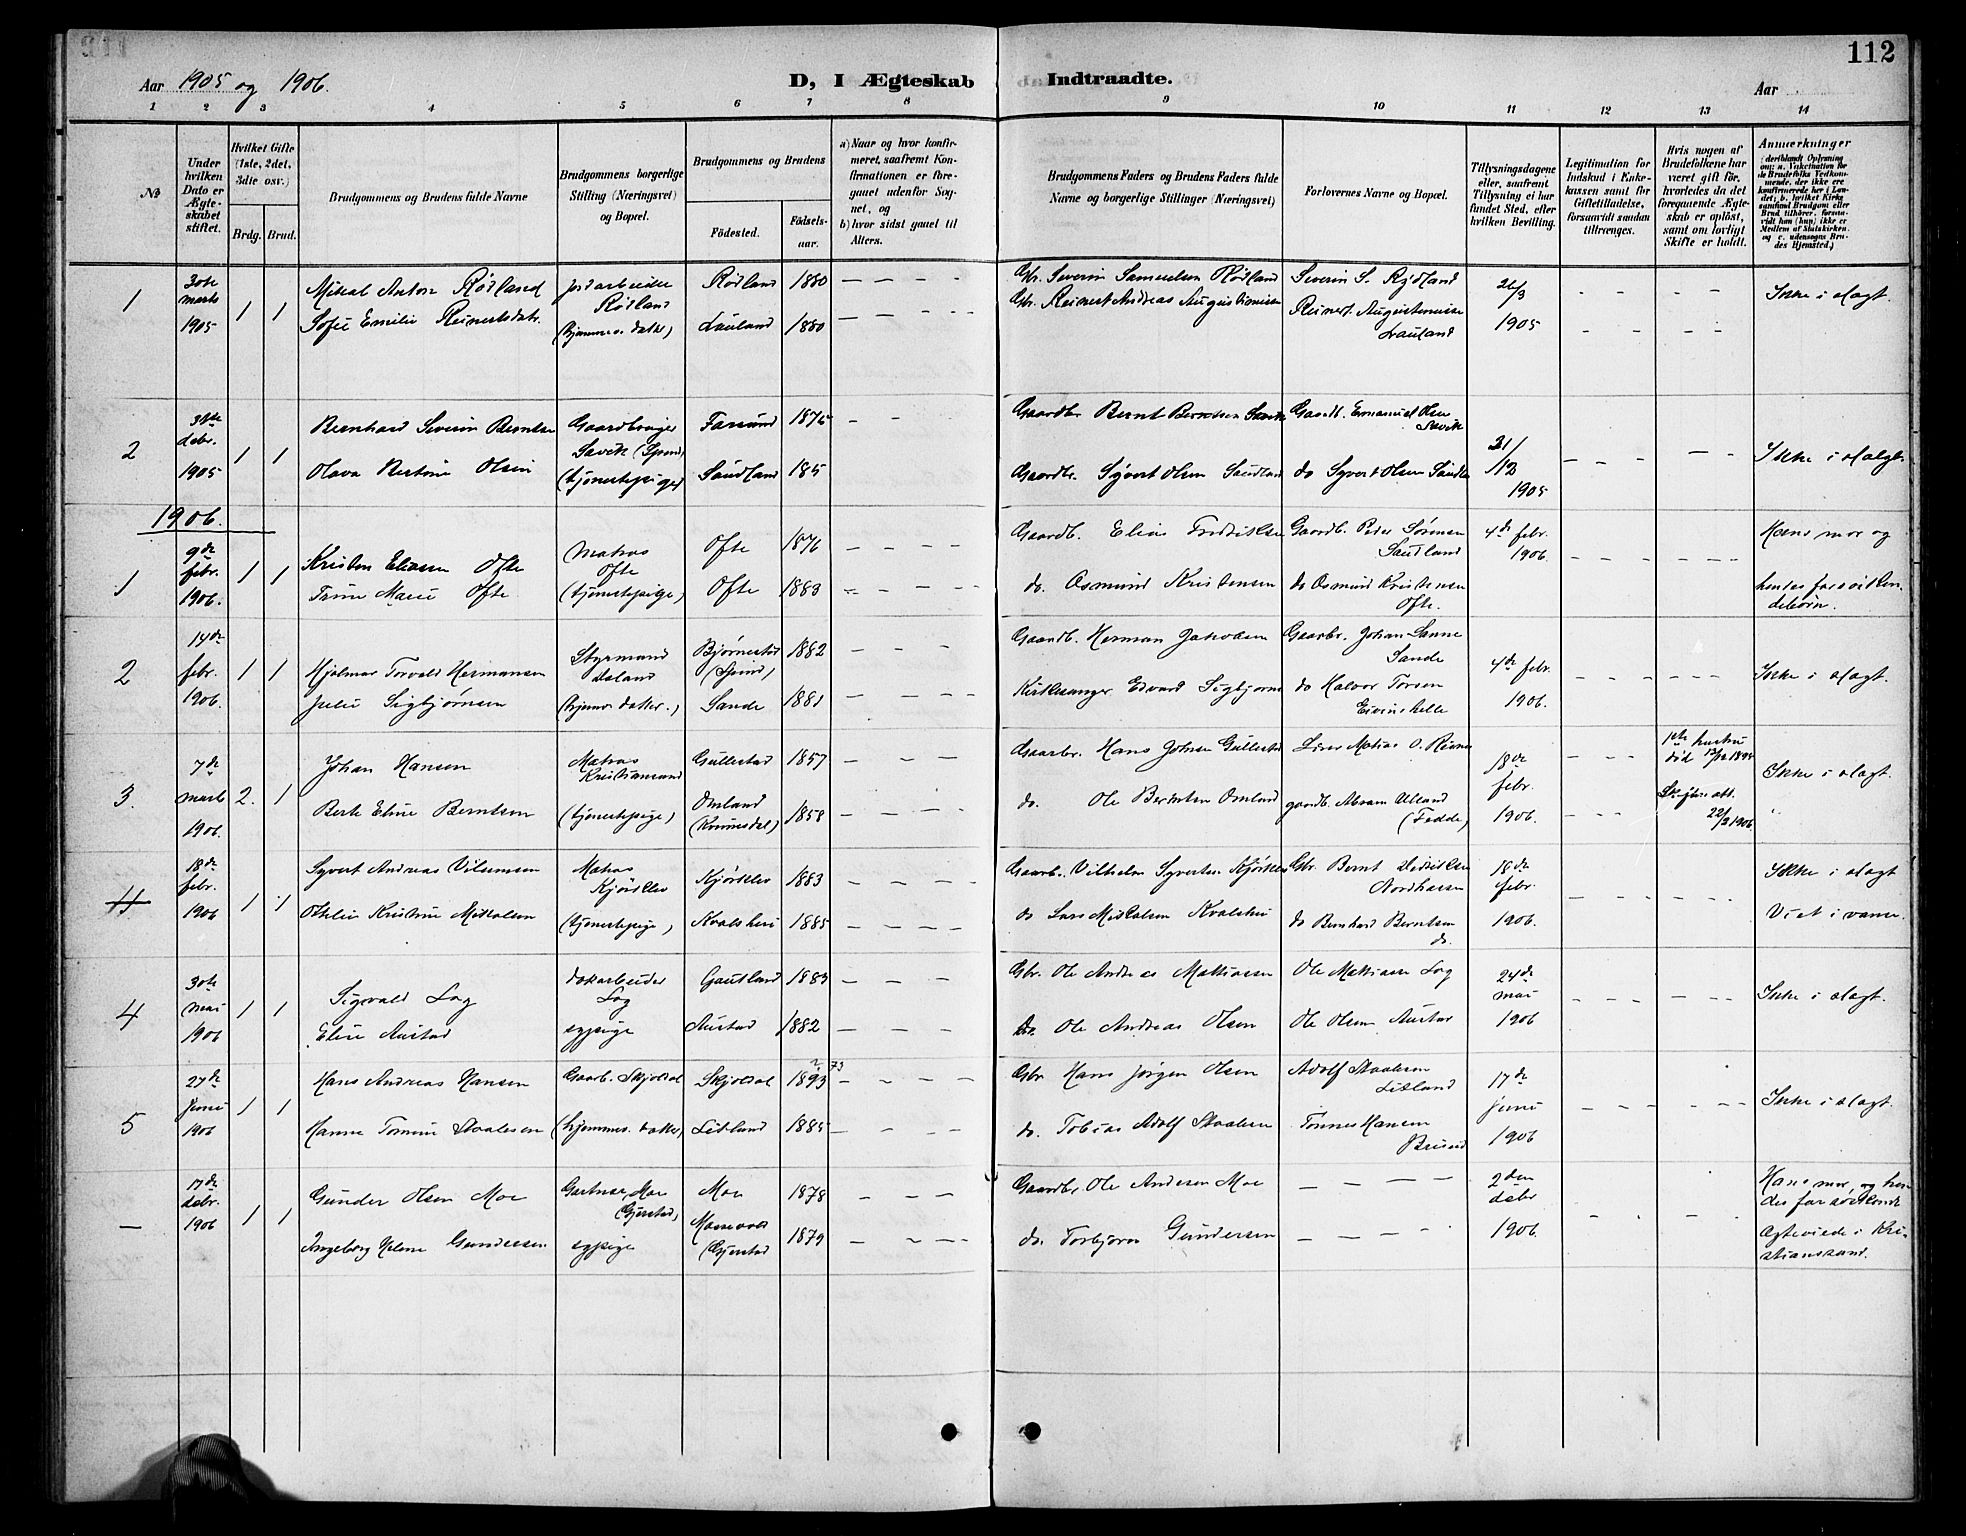 112
Aar 1905 og 1906.
D, I Ægteskab Indtraadte.
Aar
1 2 3 4 5 6 7 8 9 10 11 12 13 14
No
Under hvilken Dato er Ægteskabet stiftet.
Hvilket Gifte (1ste, 2det, 3die osv.)
Brdg. Brud.
Brudgommens og Brudens fulde Navne
Brudgommens borgerlige Stilling (Næringsvei) og Bopæl.
Brudgommens og Brudens
Födested.
Födselsaar.
a) Naar og hvor konfirmeret, saafremt Konfirmationen er foregaaet udenfor Sognet, og
b) hvor sidst gaaet til Alters.
Brudgommens Faders og Brudens Faders fulde Navne og borgerlige Stillinger (Næringsvei)
Forlovernes Navne og Bopæl.
Tillysningsdagene eller, saafremt Tillysning ei har fundet Sted, efter hvilken Bevilling.
Legitimation for Indskud i Enkekassen samt for Giftetilladelse, forsaavidt saadan tiltrænges.
Hvis nogen af Brudefolkene har været gift för, hvorledes da det foregaaende Ægteskab er oplöst, samt om lovligt Skifte er holdt.
Anmærkninger
1 30te marts 1905 1 1
Mikal Anton Rødland jordarbeider Rødland Rødland 1880 Gbr. Severin Samuelsen Rødland Severin S. Rødland 26/3 1905 Ikke i slagt.
Sofie Emilie Reinertsdatr. (hjemmev. datter) Lauland 1880 Gbr. Reinert Andreas Augustinusen Reinert Augustinusen Lauland
2 31te debr. 1905 1 1
Bernhard Severin Berntsen Gaardbruger Savik (Spind) Farsund 1875 Gaardbr. Bernt Berntsen Savik Gaardb. Emanuel Olsen Savik 31/12 1905 Ikke i slagt.
Olava Bertine Olsen (tjenestepige) Saudland 185 Gaardbr. Syvert Olsen Saudland do Syvert Olsen Saudland
1906.
1 9de febr. 1906. 1 1
Kristen Eliassen Ofte Matros Ofte Ofte 1876 Gaardb. Elias Fredriksen Gaardb. Peder Sørensen Saudland 4de febr. 1906. Hans mor og
Trine Marie Ofte (tjenestepige) Ofte 1883 do. Osmund Kristensen do Osmund Kristensen Ofte. hendes far søskendebørn.
2 14de febr. 1906. 1 1
Hjalmar Torvald Hermansen Styrmand Bjørnestad (Spind) 1882 Gaardb. Herman Jakobsen Gaarbr. Johan Sanne Sande 4de febr. 1906. Ikke i slagt.
Julie Sigbjørnsen (hjemv. datter.) Sande 1881 Kirkesanger Edvard Sigbjørns do Halvor Torsen
3. 7de marts 1906. 2. 1
Johan Hansen Matros Kristiansand Gullestad 1857 Gaarbr. Hans Johnsen Gullestad 18de febr. 1906. 1ste hustru død Ikke i slagt.
Berte Eline Berntsen (tjenestepige) Omland (Kvinesdal) 1858 do. Ole Berntsen Omland gaardb. Abram Ulland (Fedde) 22/2 1906. "
4 18de febr. 1906 1 1
Syvert Andreas Vilumsen Matros Kjørkleo Kjørkleo 1883 Gaarb. Vilhelm Syvertsen Kjørkleo Gbr. Bernt Didriksen Nordhassel 18de febr. 1906. Ikke i slagt
Othelie Kristine Mikalsen (tjenestepige) Kvalshei 1885 do Lars Mikalsen Kvalshei do Bernhard Berntsen do. Viet i vanse.
4 30te mai 1906 1 1
Sigvald Log dokarbeider Log Gautland 1883 Gbr. Ole Andreas Mathiassen Ole Mathiassen Log 24de mai 1906 Ikke i slagt.
Elise Austad sypige Austad 1882 do. Ole Andreas Olsen Ole Olsen Austad
5 27de juni 1906 1 1
Hans Andreas Hansen Gaarb. Skjoldal Skjoldal 1893 73 Gbr Hans Jørgen Olsen Adolf Staalesen Litland 17de juni 1906 Ikke i slagt.
Hanne Tomine Staalesen (hjemmev. datter) Litland 1885 do. Tobias Adolf Staalesen Tønnes Hansen
— 17de debr. 1906 1 1
Gunder Olsen Moe Gartner, Moe (Gjerstad) Moe 1878 Gaardb. Ole Andersen Moe 2den debr 1906. Hans mor og hendes far søskende
Ingeborg Helene Gundersen sypige (Gjerstad 1879 do. Torbjørn Gundersen Ægteviede i Kristianssand.